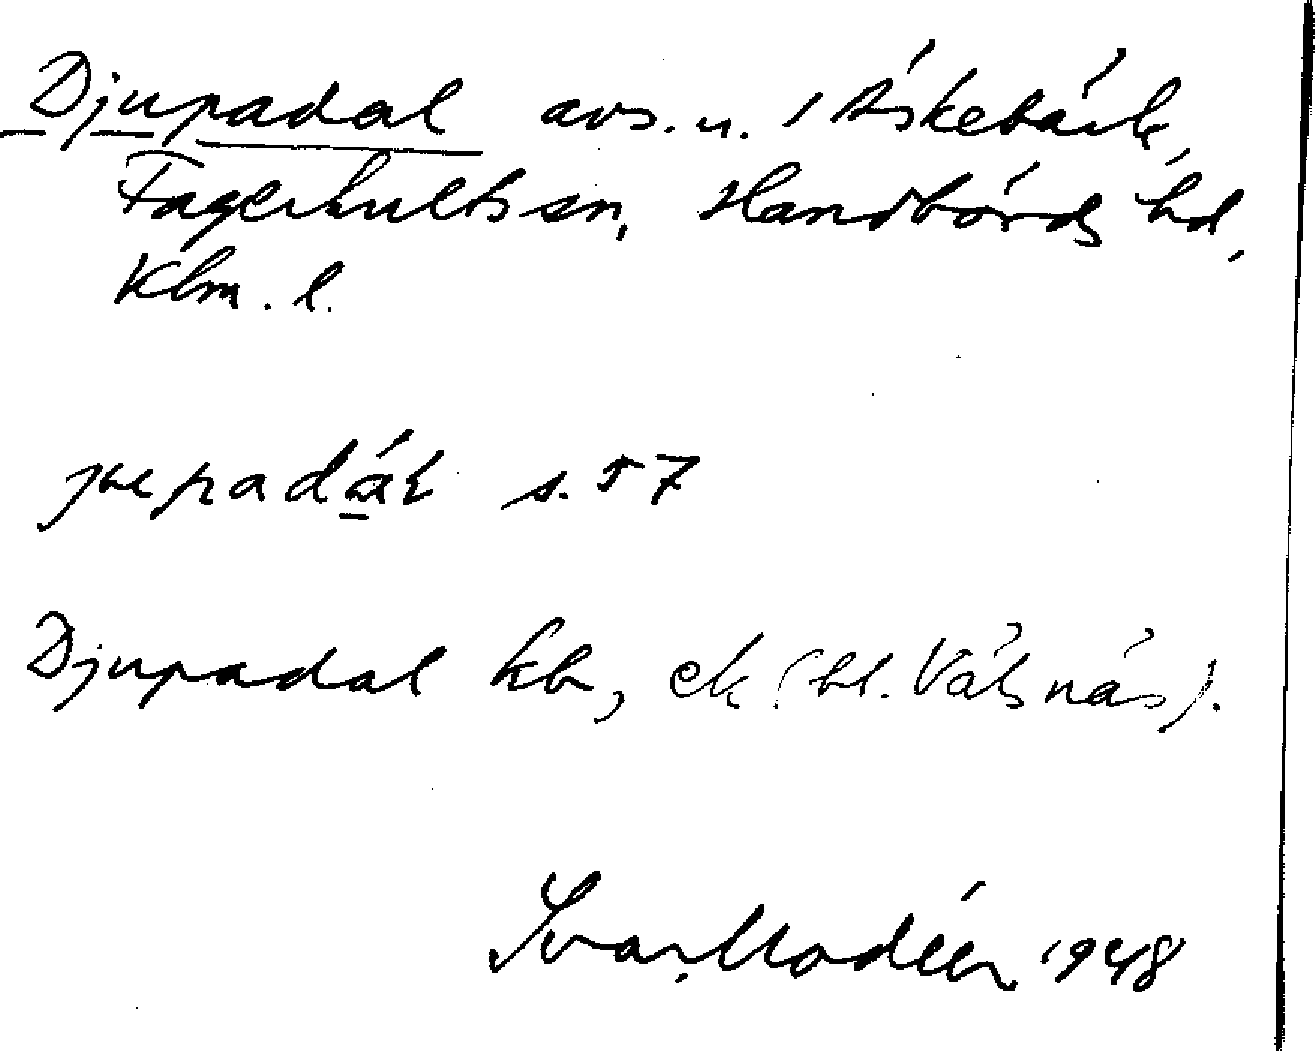 Djupadal avs. u. i Äskebäck,
Fagerhults sn, Handbörds hd,
Klm. l.
s. 57
Djupadal kb, ek (bl. Vätsnäs).
Ivar Modéer 1948